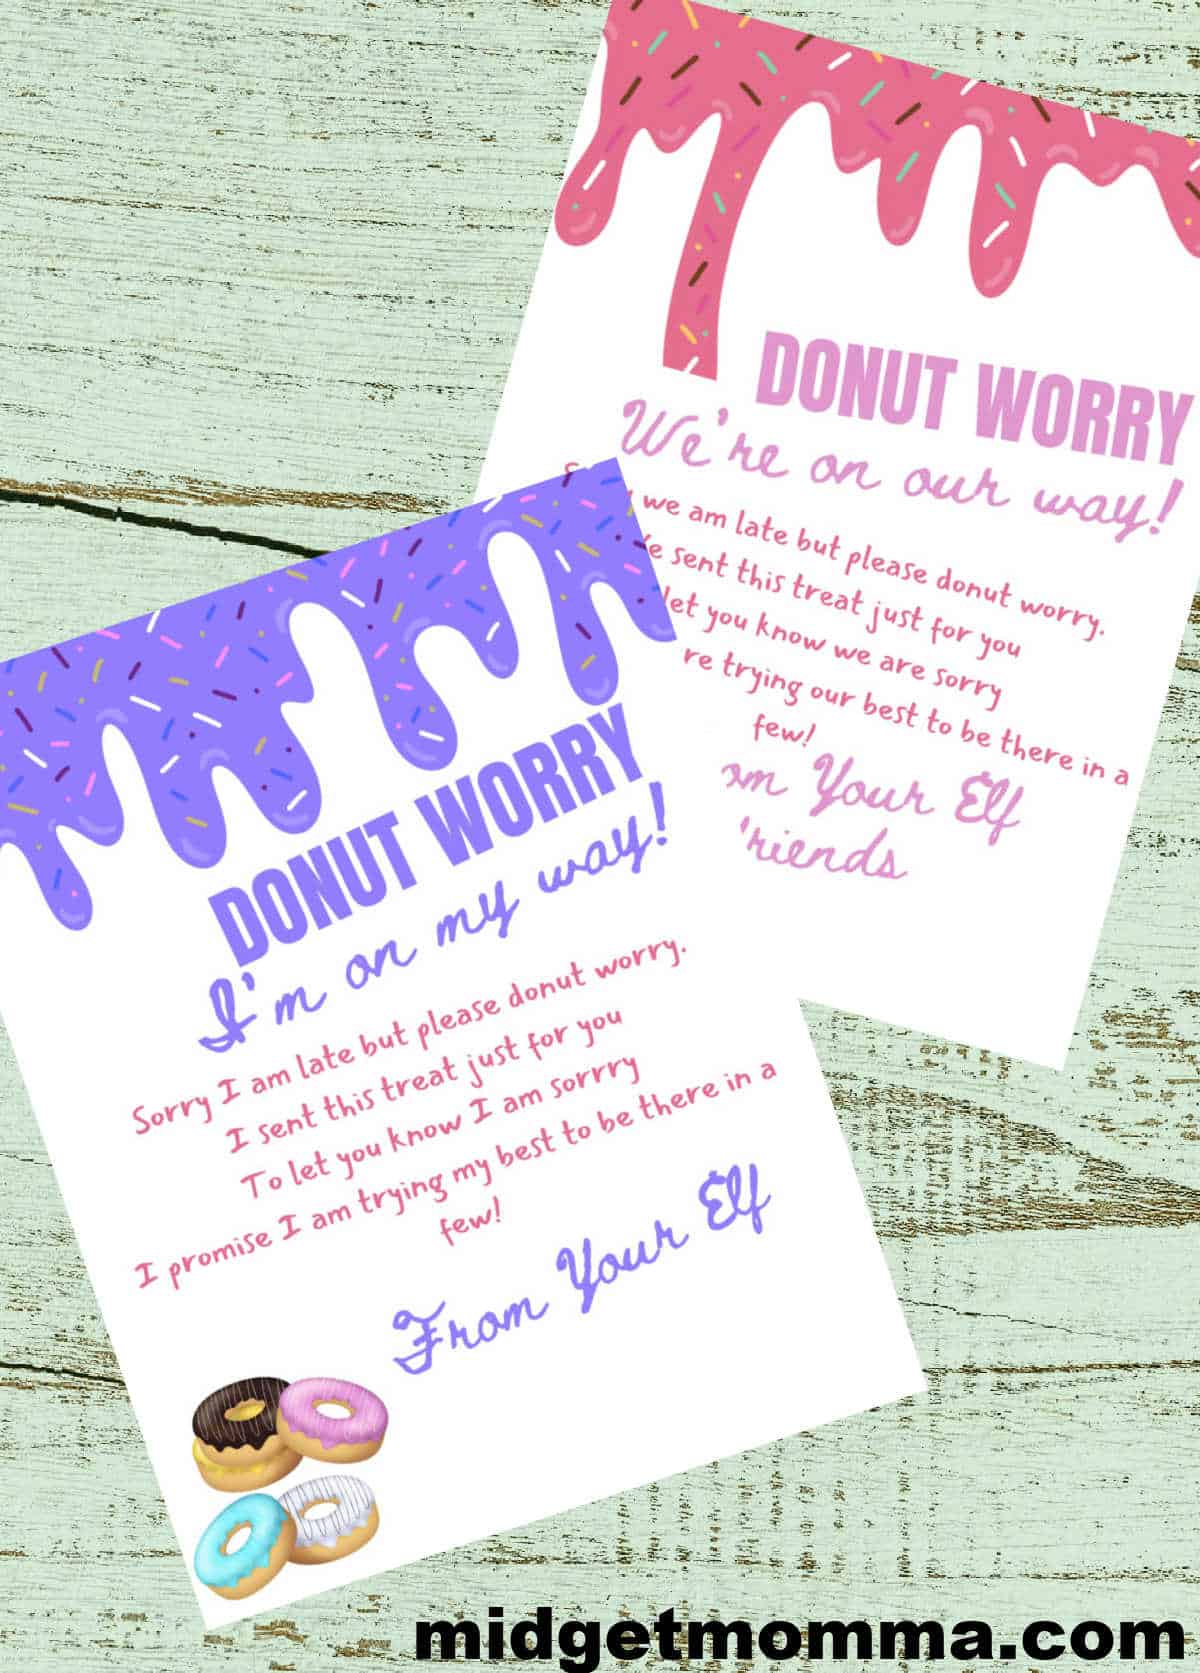 DONUT WORRY
We're on our way!
we am late but please donut worry.
sent this treat just for you
let you know we are sorry
re trying our best to be there in a
few!
om Your Elf
riends
DONUT WORRY
I'm on my way!
Sorry I am late but please donut worry.
I sent this treat just for you
To let you know I am sorrry
I promise I am trying my best to be there in a
few!
From Your Elf
midgetmomma.com